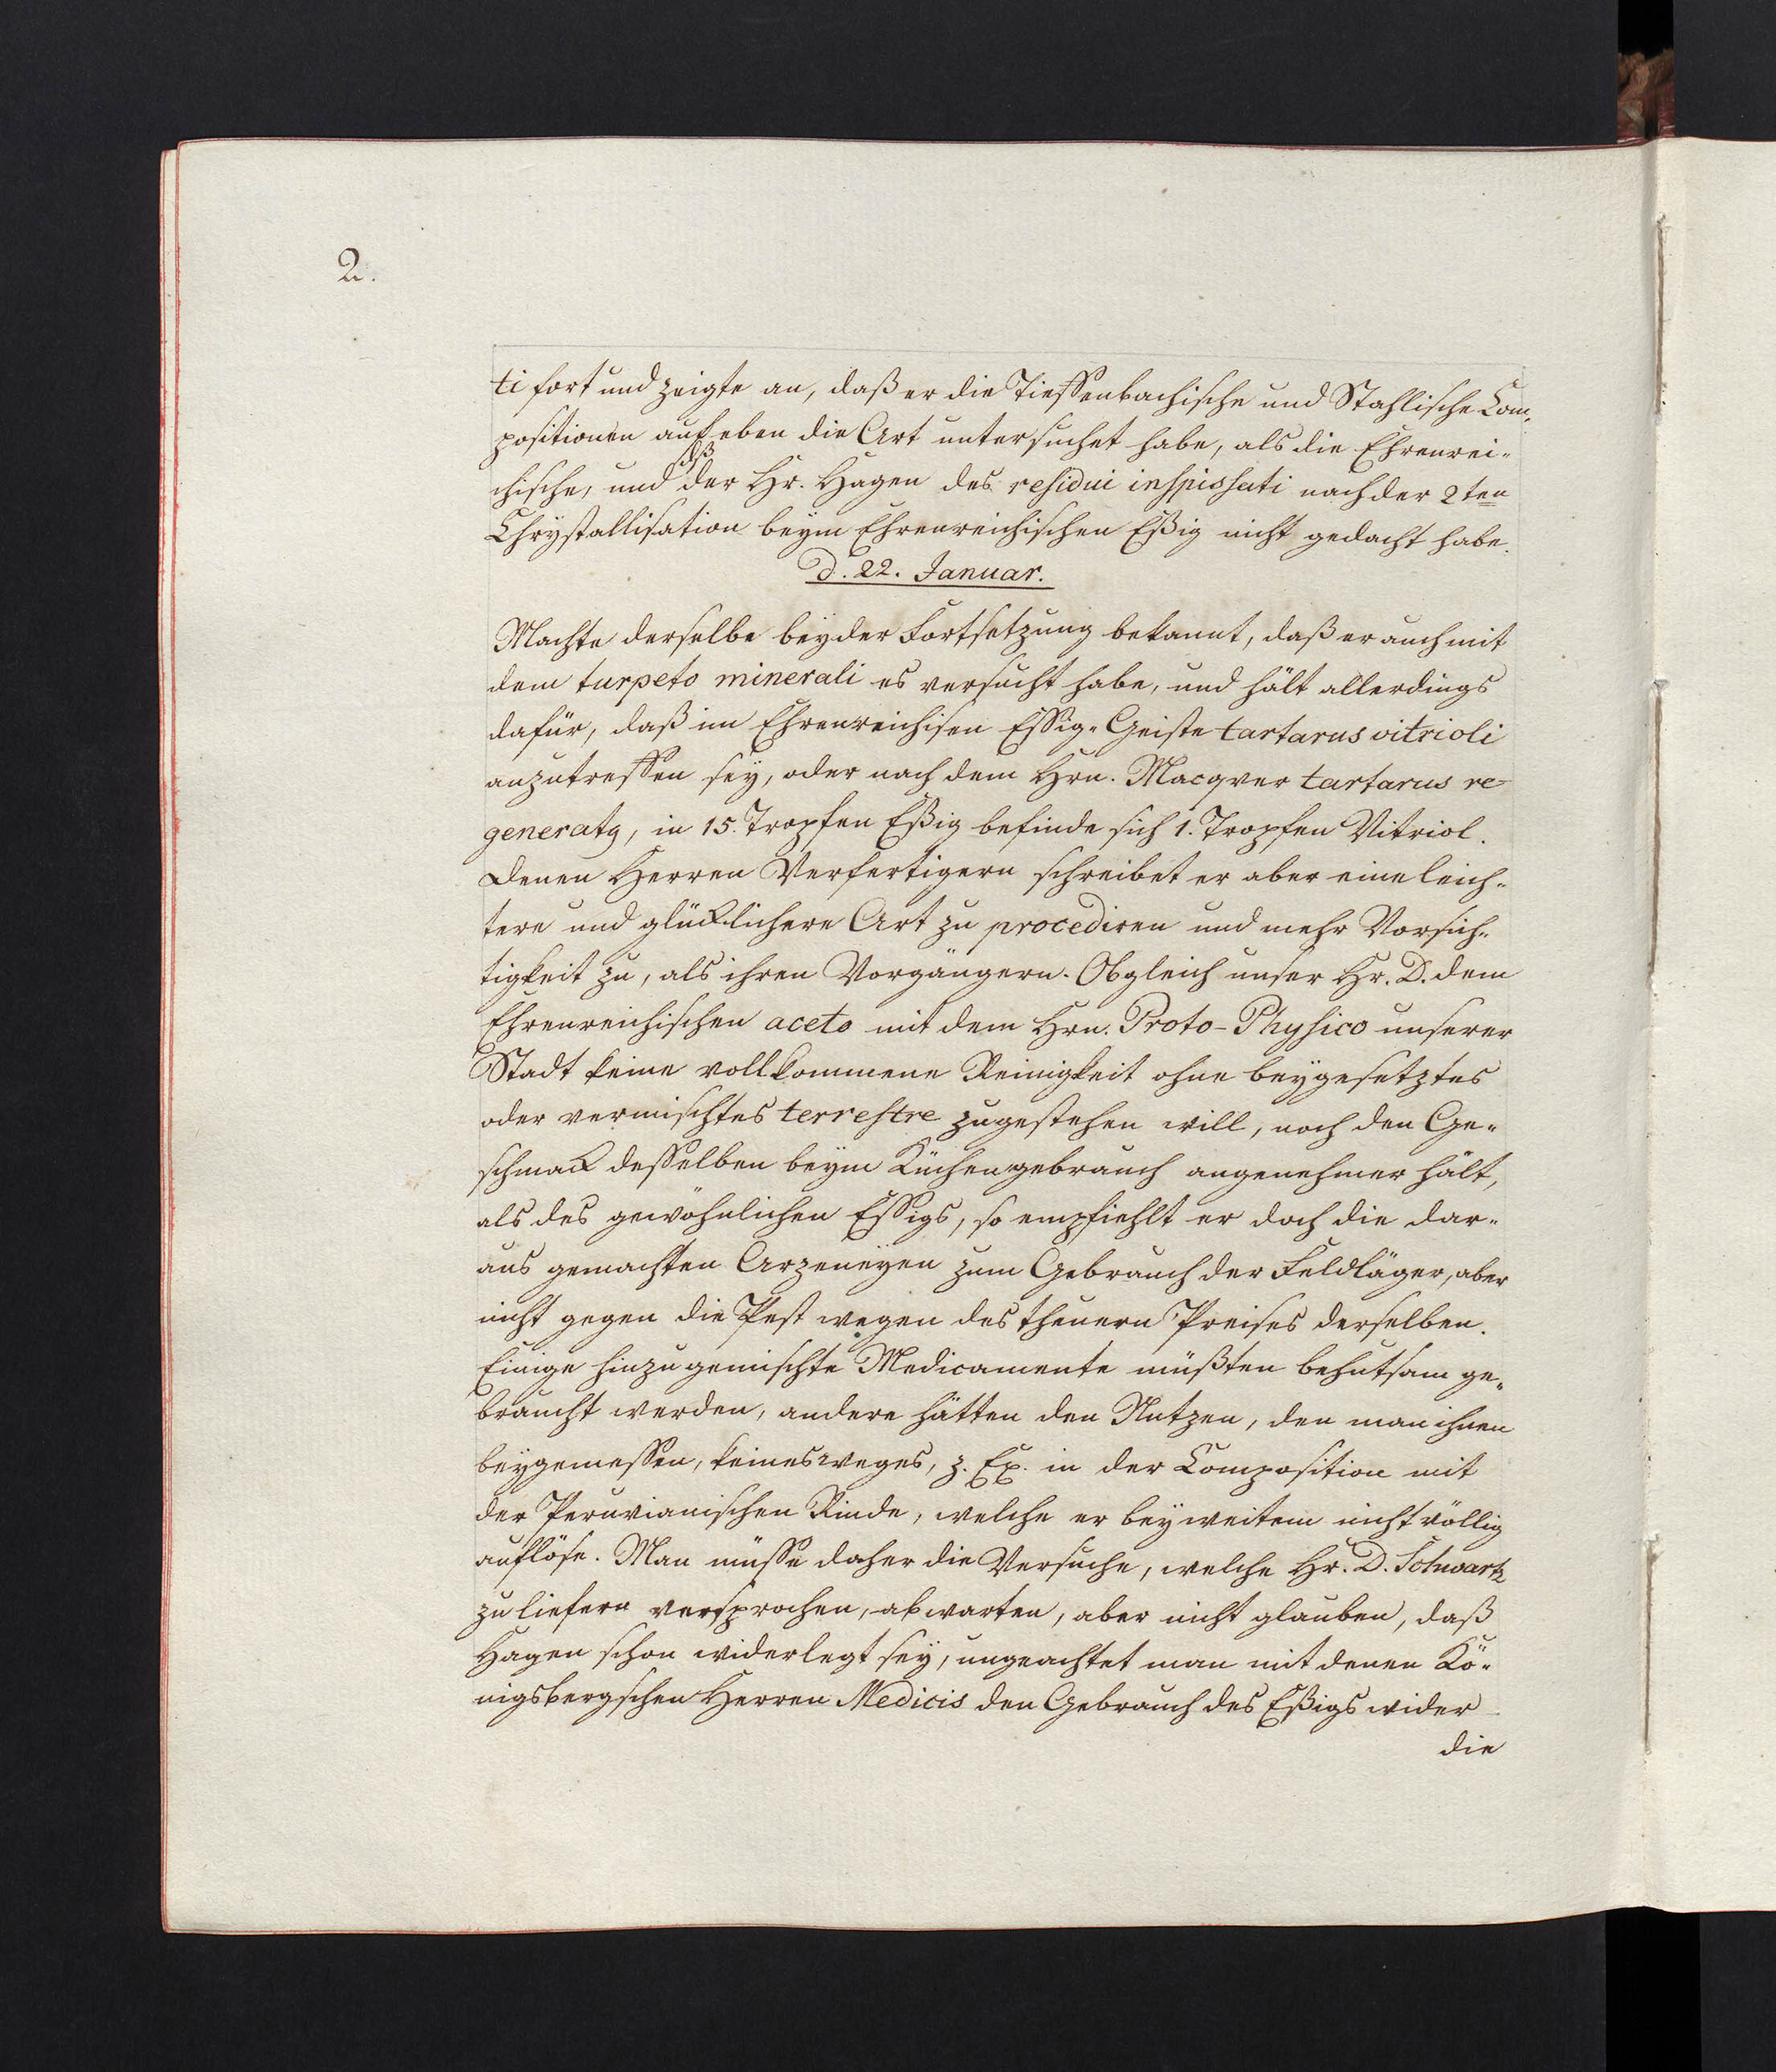 2.
ti fort und zeigte an, daß er die Tieffenbachische und Stahlische Com-
positionen auf eben die Art untersuchet habe, als die Ehrenrei-
daß
chische, und der Hr. Hagen des residui inspissati nach der 2ten
Chrystallisation beym Ehrenreichischen Eßig nicht gedacht habe.
d. 22. Januar.
Machte derselbe bey der Fortsetzung bekannt, daß er auch mit
dem turpeto minerali es versucht habe, und hält allerdings
dafür, daß im Ehrenreichisen Essig-Geiste tartarus vitrioli
anzutreffen sey, oder nach dem Hrn. Macqver tartarus re-
generatq, in 15. Tropfen Eßig befinde sich 1. Tropfen Vitriol.
Denen Herren Verfertigern schreibet er aber eine leich-
tere und glücklichere Art zu procediren und mehr Vorsich-
tigkeit zu, als ihren Vorgängern. Obgleich unser Hr. D. dem
Ehrenreichischen aceto mit dem Hrn. Proto-Physico unserer
Stadt keine vollkommene Reinigkeit ohne beygesetztes
oder vermischtes terrestre zugestehen will, noch den Ge-
schmack desselben beym Küchengebrauch angenehmer hält,
als des gewöhnlichen Essigs, so empfiehlt er doch die dar-
aus gemachten Arzeneyen zum Gebrauch der Feldläger, aber
nicht gegen die Pest wegen des theuern Preises derselben.
Einige hinzugemischte Medicamente müßten behutsam ge-
braucht werden, andere hätten den Nutzen, den man ihnen
beygemessen, keinesweges, z. Ex. in der Composition mit
der Peruvianischen Rinde, welche er bey weitem nicht völlig
auflöse. Man müsse daher die Versuche, welche Hr. D. Schwartz
zu liefern versprochen, abwarten, aber nicht glauben, daß
Hagen schon widerlegt sey, ungeachtet man mit denen Kö-
nigsbergschen Herren Medicis den Gebrauch des Eßigs wider
die